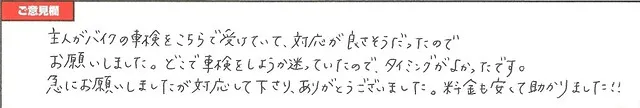 ご意見欄
主人がバイクの車検をこちらで受けていて、対応が良さそうだったので
お願いしました。どこで車検をしようか迷っていたので、タイミングがよかったです。
急にお願いしましたが対応して下さり、ありがとうございました。料金も安くて助かりました!!